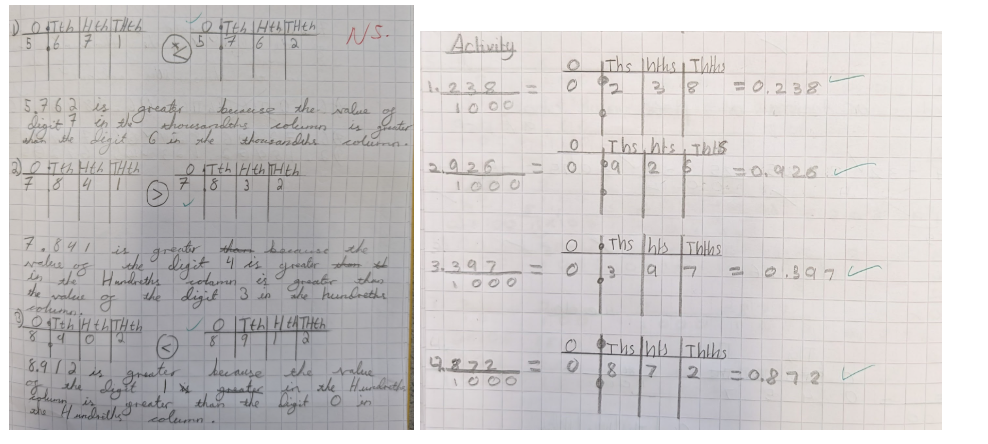 1) O Tth Hth THth O Tth Hth THth NS.
5 6 7 1 < 5 7 6 2
5.762 is greater because the value of
digit 7 in the thousandths column is greater
than the digit 6 in the thousandths column.
2) O Tth Hth THth O Tth Hth THth
7 8 4 1 > 7 8 3 2
7.841 is greater than because the
value of the digit 4 is greater than
in the Hundreths column is greater than
the value of the digit 3 in the hundreths
column.
3) O Tth Hth THth O Tth Hth THth
8 9 0 2 < 8 9 1 2
8.912 is greater because the value
of the digit 1 is greater in the Hundreths
column is greater than the digit 0 in
the Hundriths column.
Activity
O Ths hths Thths
1. 238 = 0 2 3 8 = 0.238
1000
O Ths hts Thts
2. 926 = 0 9 2 6 = 0.926
1000
O Ths hts Thths
3. 397 = 0 3 9 7 = 0.397
1000
O Ths hts Thths
4. 872 = 0 8 7 2 = 0.872
1000